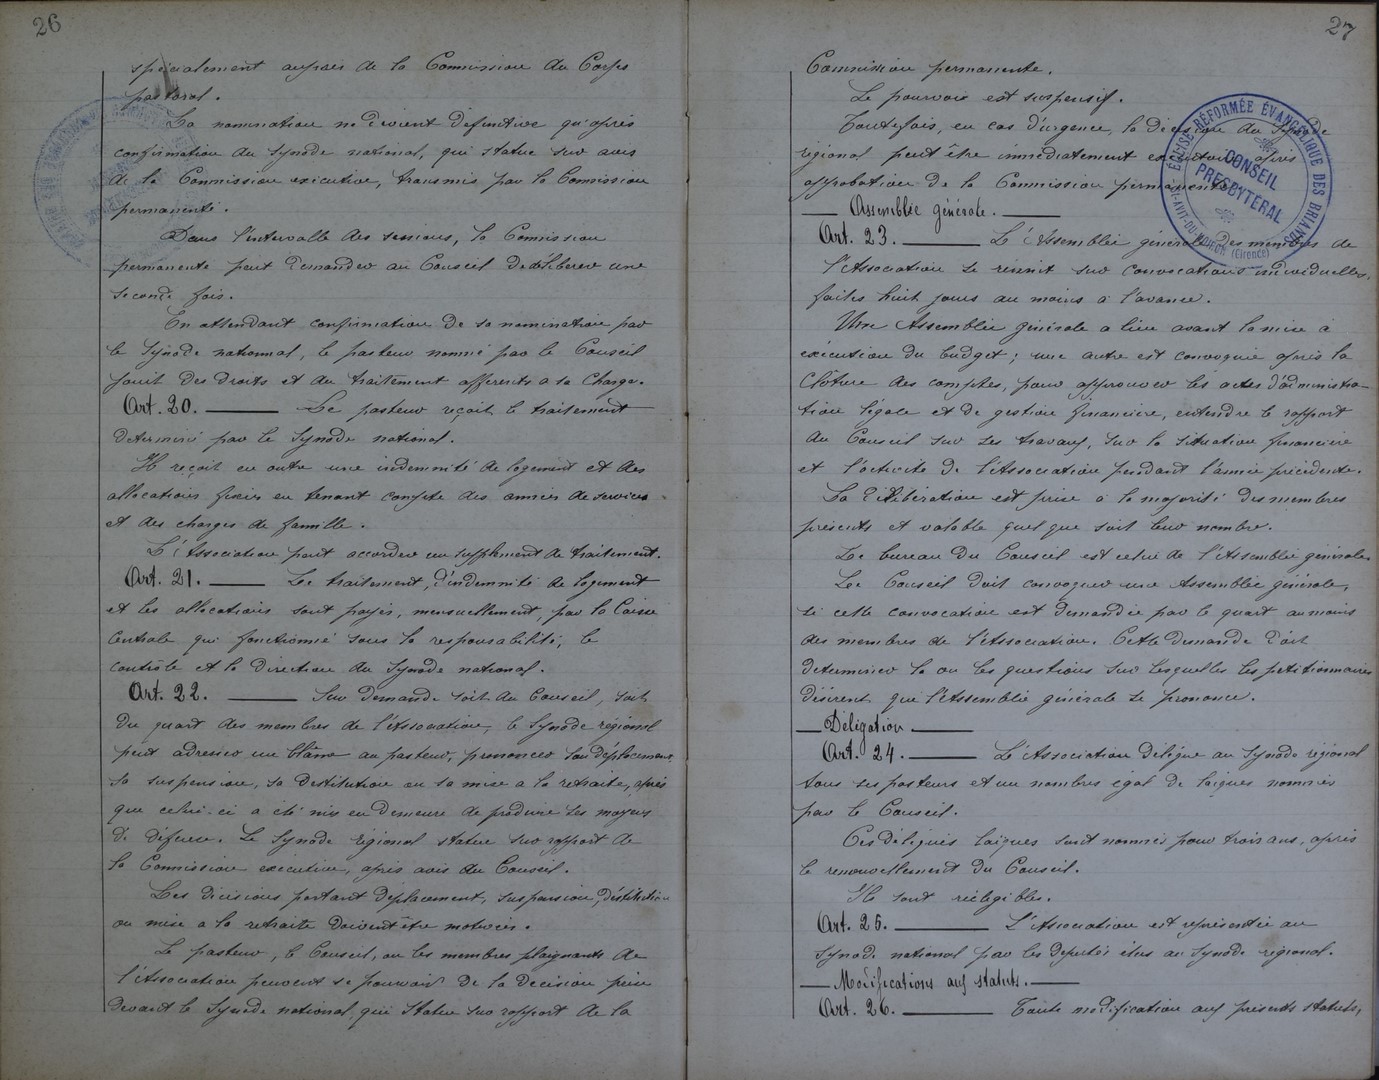 26
spécialement auprès de la Commission du Corps
pastoral.
La nomination ne devient définitive qu'après
confirmation du Synode national, qui statue sur avis
de la Commission exécutive, transmis par la Commission
permanente.
Dans l'intervalle des sessions, la Commission
permanente peut demander au Conseil de délibérer une
seconde fois.
En attendant confirmation de sa nomination par
le Synode national, le pasteur nommé par le Conseil
jouit des droits et du traitement afférents à sa charge.
Art. 20. — Le pasteur reçoit le traitement
déterminé par le Synode national.
Il reçoit en outre une indemnité de logement et des
allocations fixées en tenant compte des années de services
et des charges de famille.
L'Association peut accorder un supplément de traitement.
Art. 21. — Le traitement, l'indemnité de logement
et les allocations sont payés, mensuellement, par la Caisse
Centrale qui fonctionne sous la responsabilité, le
contrôle et la direction du Synode national.
Art. 22. — Sur demande soit du Conseil, soit
du quart des membres de l'Association, le Synode régional
peut adresser un blâme au pasteur, prononcer son déplacement
sa suspension, sa destitution ou sa mise à la retraite, après
que celui-ci a été mis en demeure de produire ses moyens
de défense. Le Synode régional statue sur rapport de
la Commission exécutive, après avis du Conseil.
Les décisions portant déplacement, suspension, destitution
ou mise à la retraite doivent être motivées.
Le pasteur, le Conseil, ou les membres plaignants de
l'Association peuvent se pourvoir de la décision prise
devant le Synode national, qui statue sur rapport de la
27
Commission permanente.
Le pourvoi est suspensif.
Toutefois, en cas d'urgence, la décision du Synode
régional peut être immédiatement exécutoire après
approbation de la Commission permanente.
— Assemblée générale. —
Art. 23. — L'Assemblée générale des membres de
l'Association se réunit sur convocations individuelles,
faites huit jours au moins à l'avance.
Une Assemblée générale a lieu avant la mise à
exécution du budget ; une autre est convoquée après la
clôture des comptes, pour approuver les actes d'administra-
tion légale et de gestion financière, entendre le rapport
du Conseil sur ses travaux, sur la situation financière
et l'activité de l'Association pendant l'année précédente.
La délibération est prise à la majorité des membres
présents et valable quel que soit leur nombre.
Le bureau du Conseil est celui de l'Assemblée générale.
Le Conseil doit convoquer une Assemblée générale,
si cette convocation est demandée par le quart au moins
des membres de l'Association. Cette demande doit
déterminer la ou les questions sur lesquelles les pétitionnaires
désirent que l'Assemblée générale se prononce.
— Délégation —
Art. 24. — L'Association délègue au Synode régional
tous ses pasteurs et un nombre égal de laïques nommés
par le Conseil.
Ces délégués laïques sont nommés pour trois ans, après
le renouvellement du Conseil.
Ils sont rééligibles.
Art. 25. — L'Association est représentée au
Synode national par les députés élus au Synode régional.
— Modifications aux statuts. —
Art. 26. — Toute modification aux présents statuts,
ÉGLISE RÉFORMÉE ÉVANGÉLIQUE DES BRIANDS
CONSEIL
PRESBYTÉRAL
(Gironde)